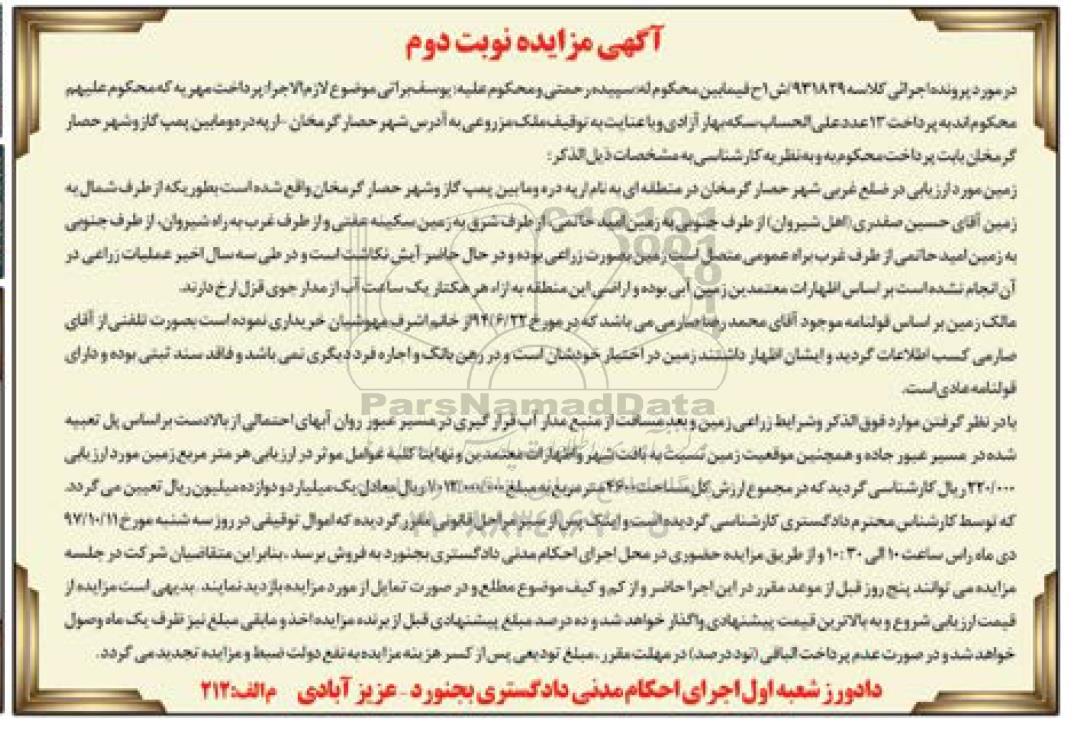 آگهی مزایده نوبت دوم
در مورد پرونده اجرائی کلاسه ۹۳۱۸۲۹/ش۱ح فیمابین محکوم له: سپیده رحمتی و محکوم علیه: یوسف براتی موضوع لازم الاجرا: پرداخت مهریه که محکوم علیهم
محکوم اند به پرداخت ۱۳ عدد علی الحساب سکه بهار آزادی و با عنایت به توقیف ملک مزروعی به آدرس شهر حصار گرمخان -اریه دره ومابین پمپ گاز وشهر حصار
گرمخان بابت پرداخت محکوم به و به نظریه کارشناسی به مشخصات ذیل الذکر:
زمین مورد ارزیابی در ضلع غربی شهر حصار گرمخان در منطقه ای به نام اریه دره وما بین پمپ گاز وشهر حصار گرمخان واقع شده است بطوریکه از طرف شمال به
زمین آقای حسین صفدری (اهل شیروان) از طرف جنوبی به زمین امید حاتمی، از طرف شرق به زمین سکینه عفتی و از طرف غرب به راه شیروان، از طرف جنوبی
به زمین امید حاتمی از طرف غرب براه عمومی متصل است زمین بصورت زراعی بوده و در حال حاضر آیش نکاشت است و در طی سه سال اخیر عملیات زراعی در
آن انجام نشده است بر اساس اظهارات معتمدین زمین آبی بوده و اراضی این منطقه به ازاء هر هکتار یک ساعت آب از مدار جوی قزل ارخ دارند.
مالک زمین بر اساس قولنامه موجود آقای محمد رضا صارمی می باشد که در مورخ ۹۴/۶/۲۲ از خانم اشرف مهوشیان خریداری نموده است بصورت تلفنی از آقای
صارمی کسب اطلاعات گردید و ایشان اظهار داشتند زمین در اختیار خودشان است و در رهن بانک و اجاره فرد دیگری نمی باشد و فاقد سند ثبتی بوده و دارای
قولنامه عادی است.
با در نظر گرفتن موارد فوق الذکر وشرایط زراعی زمین و بعد مسافت از منبع مدار آب قرار گیری در مسیر عبور روان آبهای احتمالی از بالادست براساس پل تعبیه
شده در مسیر عبور جاده و همچنین موقعیت زمین نسبت به بافت شهر و اظهارات معتمدین و نهایتا کلیه عوامل موثر در ارزیابی هر متر مربع زمین مورد ارزیابی
۲۲۰/۰۰۰ ریال کارشناسی گردید که در مجموع ارزش کل مساحت ۴۶۰۰ متر مربع به مبلغ ۱/۰۱۲/۰۰۰/۰۰۰ ریال معادل یک میلیارد و دوازده میلیون ریال تعیین می گردد.
که توسط کارشناس محترم دادگستری کارشناسی گردیده است و اینک پس از سیر مراحل قانونی مقرر گردیده که اموال توقیفی در روز سه شنبه مورخ ۹۷/۱۰/۱۱
دی ماه راس ساعت ۱۰ الی ۱۰:۳۰ و از طریق مزایده حضوری در محل اجرای احکام مدنی دادگستری بجنورد به فروش برسد .بنابراین متقاضیان شرکت در جلسه
مزایده می توانند پنج روز قبل از موعد مقرر در این اجرا حاضر و از کم و کیف موضوع مطلع و در صورت تمایل از مورد مزایده بازدید نمایند. بدیهی است مزایده از
قیمت ارزیابی شروع و به بالاترین قیمت پیشنهادی واگذار خواهد شد و ده درصد مبلغ پیشنهادی قبل از برنده مزایده اخذ و مابقی مبلغ نیز ظرف یک ماه وصول
خواهد شد و در صورت عدم پرداخت الباقی (نود درصد) در مهلت مقرر ،مبلغ تودیعی پس از کسر هزینه مزایده به نفع دولت ضبط و مزایده تجدید می گردد.
دادورز شعبه اول اجرای احکام مدنی دادگستری بجنورد - عزیز آبادی م الف:۲۱۲
ParsNamadData